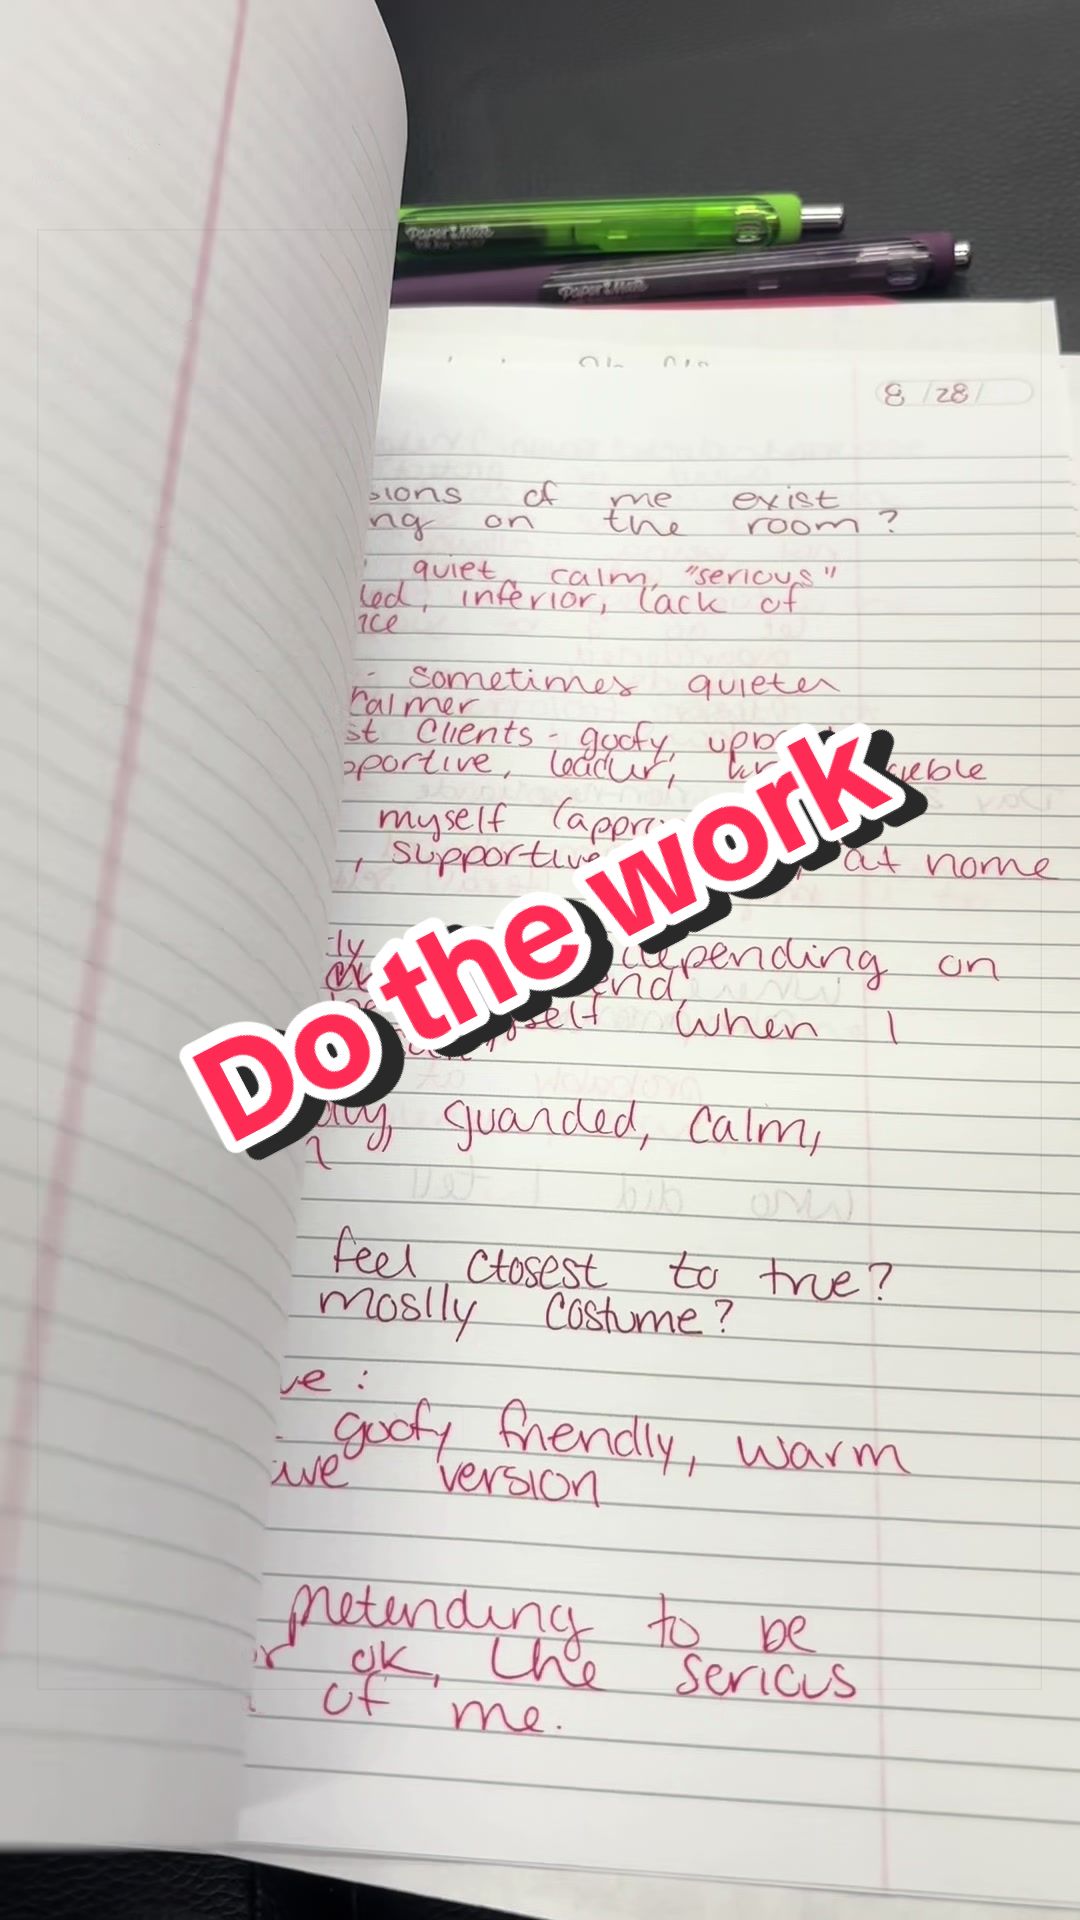 Paper Mate
InkJoy
Paper Mate
8/28/
sions of me exist
ng on the room?
quiet, calm, "serious"
led, inferior, lack of
ice
- sometimes quieter
calmer
st Clients - goofy,
pportive, leader,
myself
, supportive at home
depending on
end,
self when I
guarded, calm,
feel closest to true?
moslly costume?
ve:
- goofy friendly, warm
ive version
pretending to be
or ok, the serious
of me.
Do the work